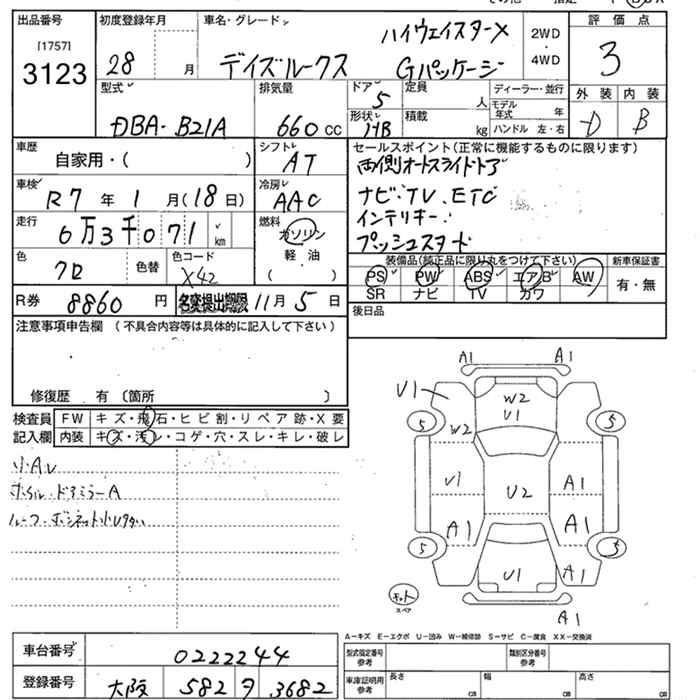 出品番号 初度登録年月 車名・グレード 評価点
[1757]
3123 28 月 デイズルークス ハイウェイスターX Gパッケージ 2WD・4WD 3
型式 排気量 ドア 定員 ディーラー・並行 外装 内装
DBA-B21A 660 cc 5 人 モデル年式 年 D B
形状 HB 積載 kg ハンドル 左・右
車歴 シフト セールスポイント(正常に機能するものに限ります)
自家用・( ) AT 両側オートスライドドア
車検 冷房 ナビ・TV. ETC
R7年1月(18日) AAC インテリキー・
走行 燃料 プッシュスタート
6万3千071km ガソリン
軽油
( )
色 色替 色コード 装備品(純正品に限り丸をつけて下さい) 新車保証書
クロ X42 PS PW ABS エアB AW 有・無
SR ナビ TV カワ
R券 8860円 名変提出期限 11月5日 後日品
注意事項申告欄(不具合内容等は具体的に記入して下さい)
修復歴 有(箇所 )
検査員 FW キズ・飛石・ヒビ割・リペア跡・X要
記入欄 内装 キズ・汚レ・コゲ・穴・スレ・キレ・破レ
小AU
ホイル・ドアミラーA
ルーフ・ボンネット小U
A1 A1
U1 W2
U1
5 5
W2
U1 U2 A1
A1 A1
5 5
U1 A1
キット
スペア
A1
A-キズ E-エクボ U-凹み W-補修跡 S-サビ C-腐食 XX-交換済
車台番号 0222244 型式指定番号 参考 類別区分番号 参考
登録番号 大阪 582 ヲ 3682 車庫証明用 参考 長さ cm 幅 cm 高さ cm